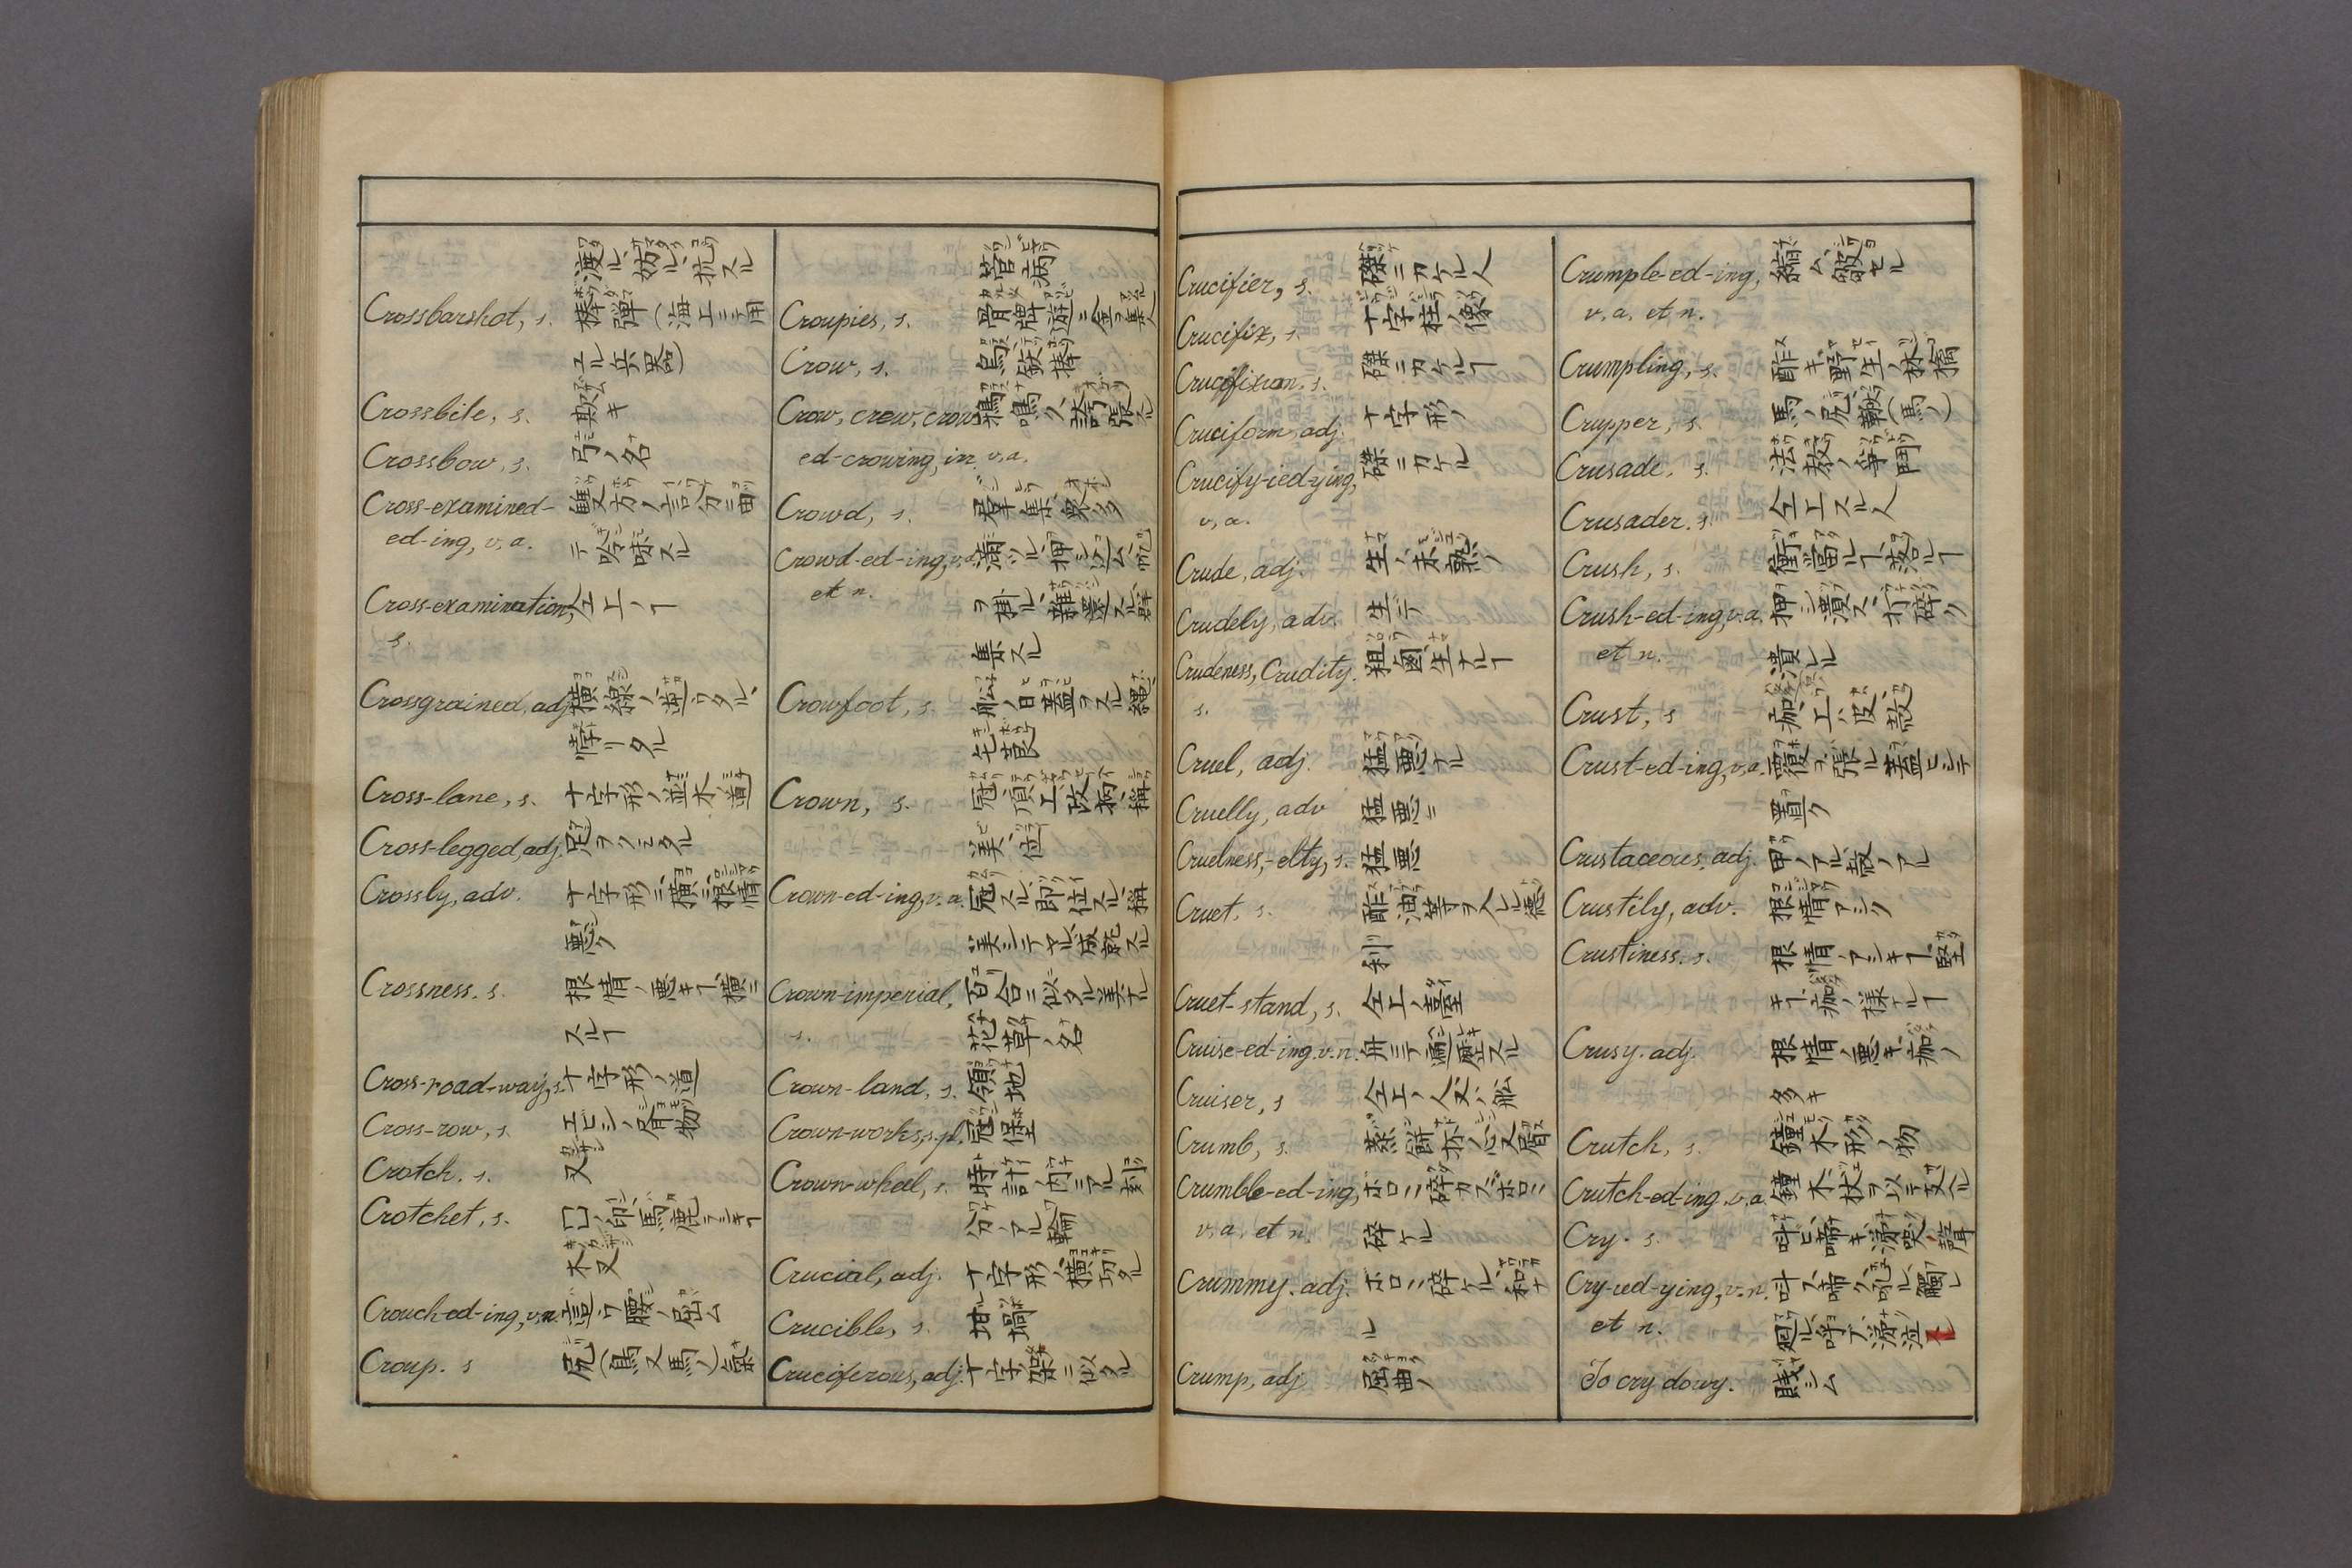 渡ル、妨ル、抗スル
Crossbarshot, s. 棒弾(海上ニテ用
ユル兵器)
Crossbite, s. 欺キ
Crossbow, s. 弓ノ名
Cross-examined- 雙方ノ言分ヲ聞
ed-ing, v, a. テ吟味スル
Cross-examination, 仝上ノヿ
s.
Crossgrained, adj. 横線ノ、逆フタル、
悖リタル
Cross-lane, s. 十字形ノ並木道
Cross-legged, adj. 尻ヲクミタル
Crossly, adv. 十字形ニ、横ニ、根情
悪ク
Crossness. s. 根情ノ悪キヿ、横ニ
スルヿ
Cross-road-way, s. 十字形ノ道
Cross-row, s. エビシノ書物
Crotch. s. 叉
Crotchet, s. 囗ノ印、馬鹿ラシキヿ
木叉
Crouch-ed-ing, v.n. 諂フ、腰ノ屈ム
Croup. s 尻(鳥又馬ノ)氣
管病
Croupies, s. 骨牌遊ニ金ヲ集ル人
Crow, s. 烏、鉄棒
Crow, crew, crow- 鶏鳴ク、誇張スル
ed-crowing, in v.a.
Crowd, s. 群集、衆多
Crowd-ed-ing, v.a. 満ツル、押シ込ム、帆
et n. ヲ掛ル、雑沓スル、群
集スル
Crowfoot, s. 舩ノ日蓋ヲスル縄、
毛莨
Crown, s. 冠、頂上、政柄、褒
美、位
Crown-ed-ing, v. a. 冠スル、即位スル、褒
美シテヤル、成就スル
Crown-imperial, 百合ニ似タル美ナル
s. 花草ノ名
Crown-land, s. 領地
Crown-works, s. pl. 冠堡
Crown-wheel, s. 時計ノ内ニアル刻
分ノアル輪
Crucial, adj. 十字形ノ、横切タル
Crucible, s. 坩堝
Cruciferous, adj. 十字架ニ似タル
Crucifier, s. 磔ニカケル人
Crucifix, s. 十字柱ノ像
Crucifixion, s. 磔ニカケルヿ
Cruciform, adj. 十字形ノ
Crucify-ied-ying, 磔ニカケル
v, a.
Crude, adj. 生ノ、未熟ノ
Crudely, adv. 生ニテ
Crudeness, Crudity. 粗鹵、生ナルヿ
s.
Cruel, adj. 猛悪ナル
Cruelly, adv 猛悪ニ
Cruelness, -elty, s. 猛悪
Cruet, s. 酢油等ヲ入ル徳
利
Cruet-stand, s. 仝上ノ臺
Cruise-ed-ing. v. n. 舟ニテ遍歴スル
Cruiser, s 仝上ノ人、又ハ舩
Crumb, s. 蒸餅抔ノ心又屑
Crumble-ed-ing, ボロ〳〵碎カス、ボロ〳〵
v, a, et n. 碎ケル
Crummy. adj. ボロ〳〵碎ケル、和ナ
ル
Crump, adj 屈曲ノ
Crumple-ed-ing, 縮ム、皺ヨセル
v, a, et n.
Crumpling, s. 酢キ野生ノ林檎
Crupper, s. 馬ノ尻、鞦(馬ノ)
Crusade, s. 法教ノ爭鬪
Crusader. s. 仝上スル人
Crush, s. 衝當ルヿ、落ルヿ
Crush-ed-ing, v.a. 押シ潰ス、打碎ク
et n. 潰レル
Crust, s 痂、上ハ皮、殼
Crust-ed-ing, v.a. 覆ヲ張ル、蓋ヒシテ
置ク
Crustaceous, adj. 甲ノアル、殼ノアル
Crustily, adv. 根情アシク
Crustiness. s. 根情ノアシキヿ、堅
キヿ、痂ノ様ナルヿ
Crusy. adj. 根情ノ悪キ、痂ノ
多キ
Crutch, s. 鐘木形ノ物
Crutch-ed-ing. v. a. 鐘木杖ヲ以テ支ル
Cry. s. 呌ヒ、啼キ、涕哭ノ聲
Cry-ied-ying, v. n. 呌フ、啼ク、吼ル、觸レ
et n. 廻ル、呼フ、涕泣ル
To cry dowy. 賤シム